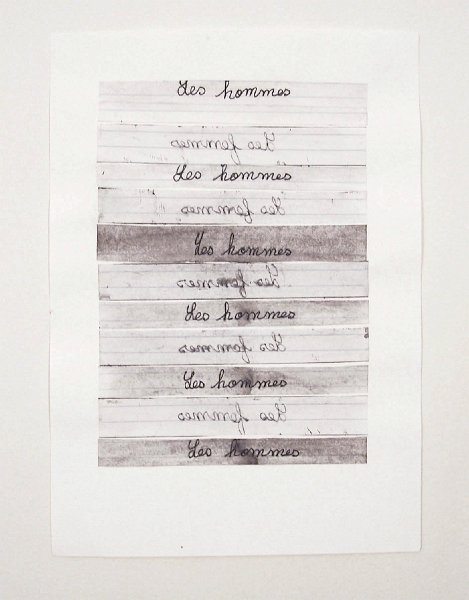 Les hommes
Les femmes
Les hommes
Les femmes
Les hommes
Les femmes
Les hommes
Les femmes
Les hommes
Les femmes
Les hommes